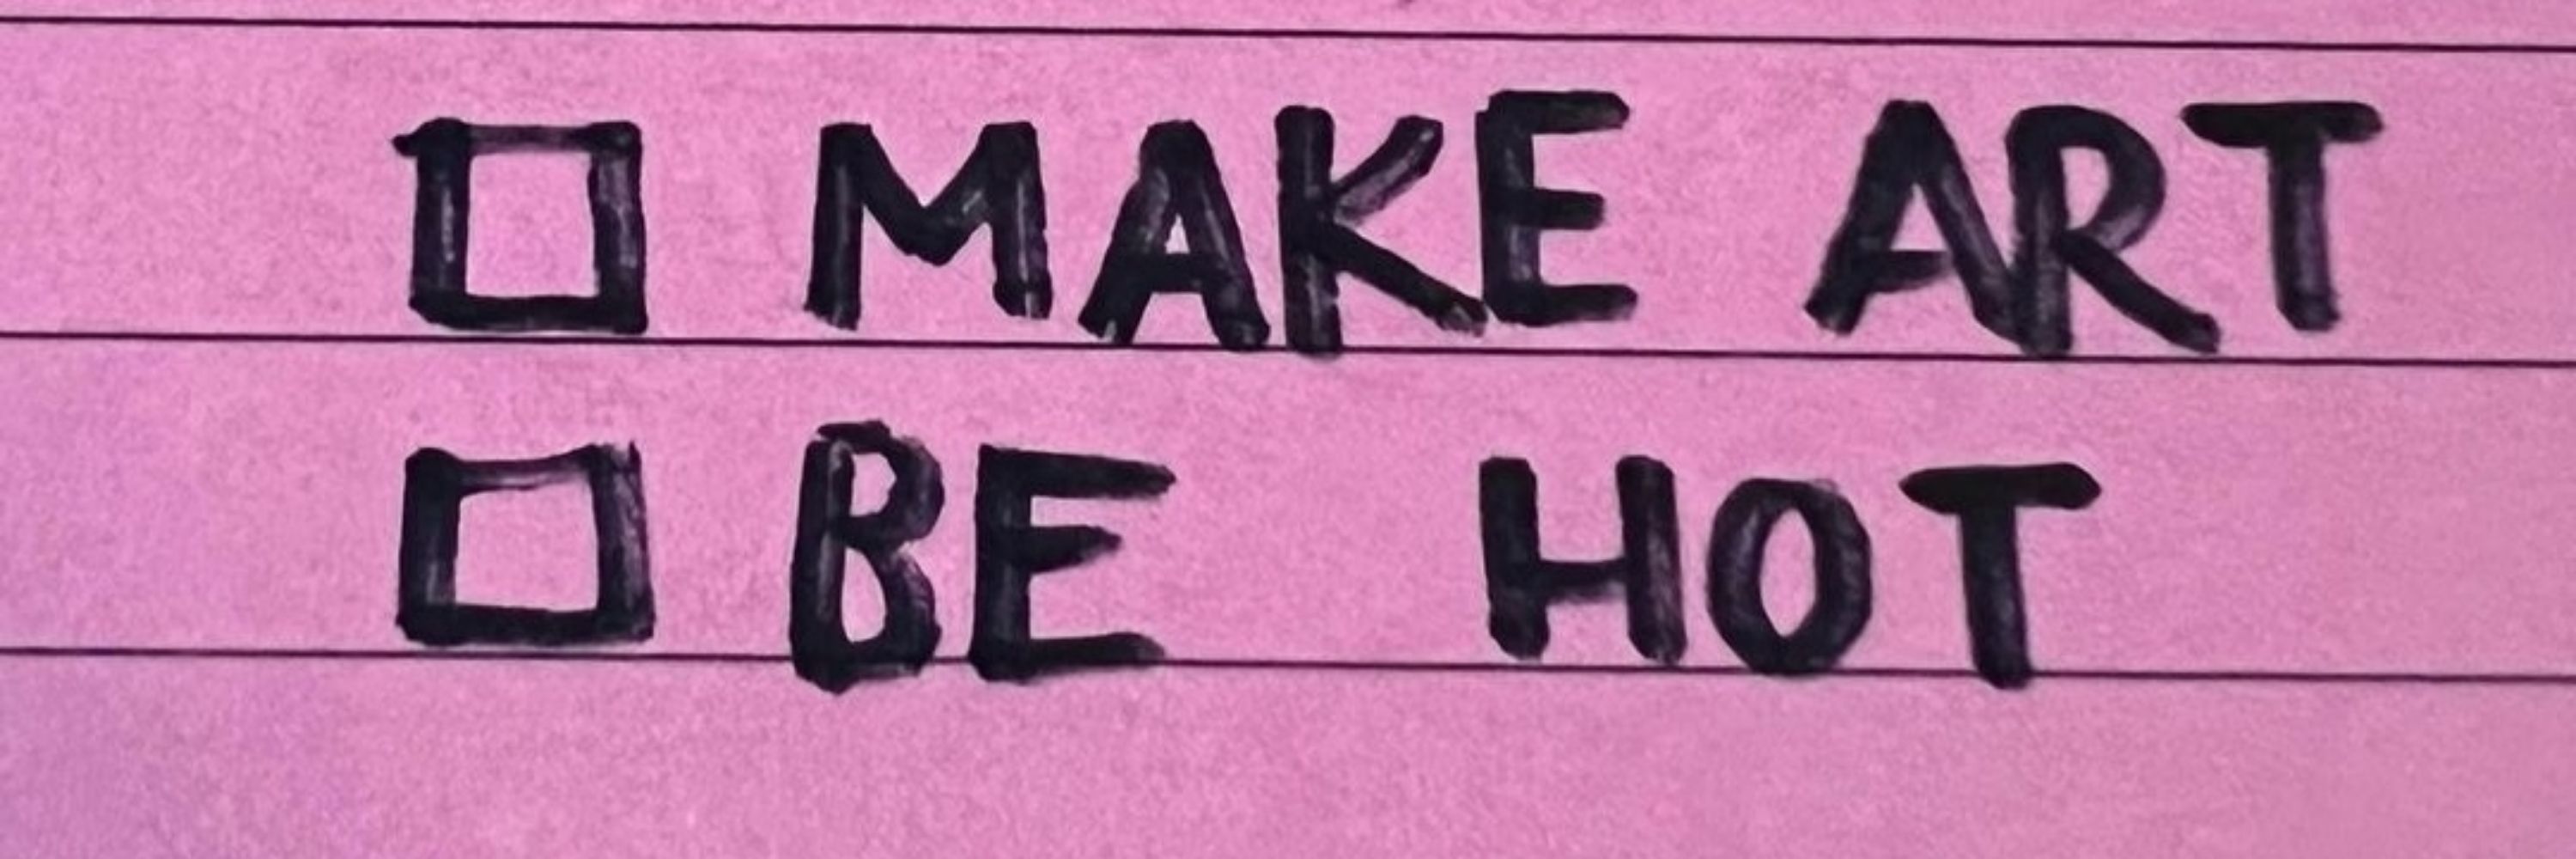 ☐ MAKE ART
☐ BE HOT